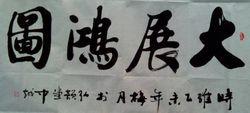 大展鴻圖
時維乙未年梅月於弘毅堂中城